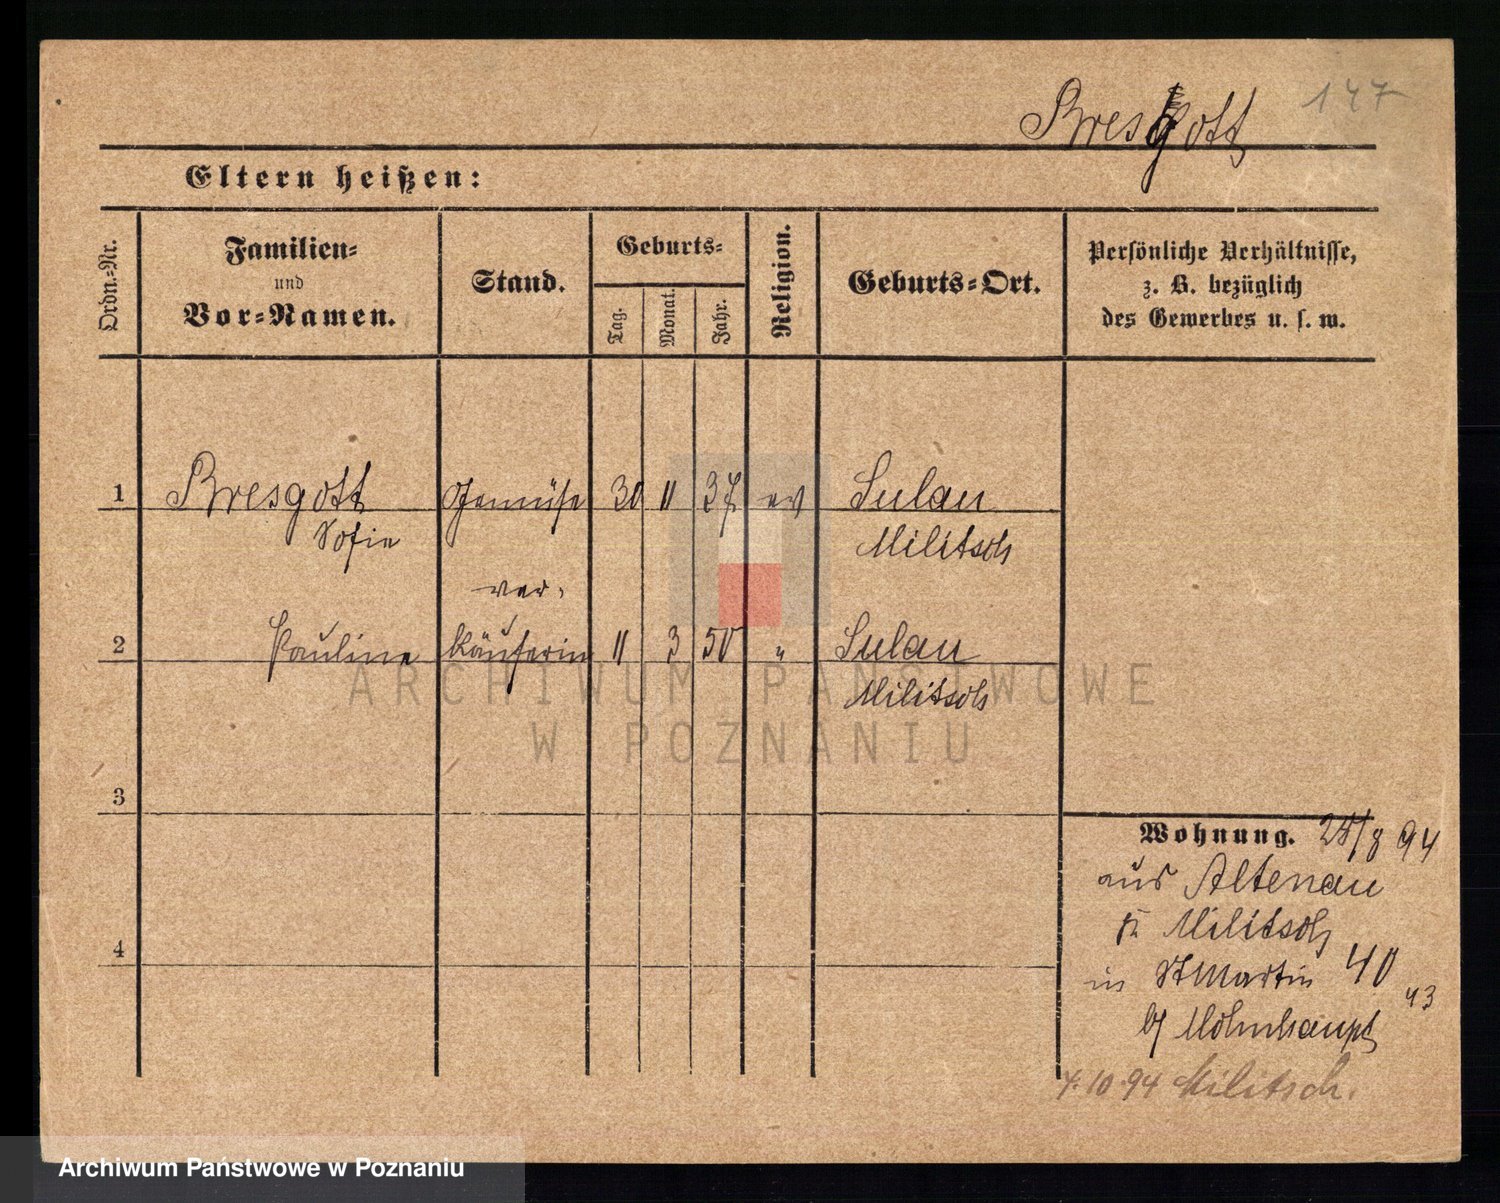 147
Bresgott
Eltern heißen:
Ordn.-Nr.
Familien-
und
Vor-Namen.
Stand.
Geburts-
Tag.
Monat.
Jahr.
Religion.
Geburts-Ort.
Persönliche Verhältnisse,
z. B. bezüglich
des Gewerbes u. s. w.
1 Bresgott Gemüse 30 11 37 ev Sulau
Sofie Militsch
ver-
2 Pauline käuferin 11 3 50 " Sulau
Militsch
3
4
Wohnung. 25/8 94
aus Altenau
Kr. Militsch
in St Martin 40
43
bei Mohnhaupt
4.10.94 Militsch.
ARCHIWUM PAŃSTWOWE
W POZNANIU
Archiwum Państwowe w Poznaniu